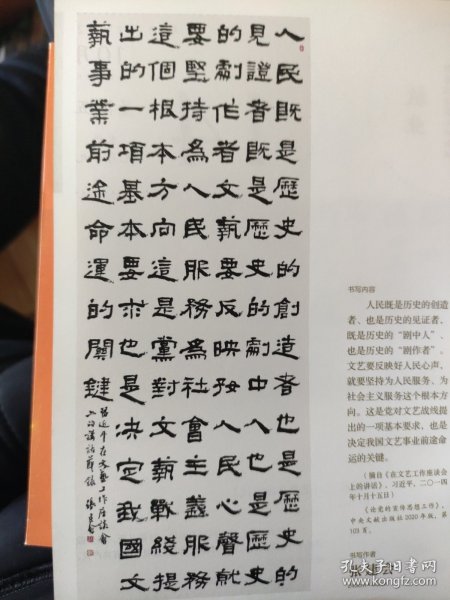 人民既是歷史的創造者也是歷史的
見證者既是歷史的劇中人也是歷史
的劇作者文執要反映好人民心聲就
要堅持為人民服務為社會主義服務
這個根本方向這是黨對文執戰綫提
出的一項基本要求也是決定我國文
執事業前途命運的關鍵
習近平在文藝工作座談會
上的講話節錄
书写内容
人民既是历史的创造
者、也是历史的见证者，
既是历史的“剧中人”、
也是历史的“剧作者”。
文艺要反映好人民心声，
就要坚持为人民服务、为
社会主义服务这个根本方
向。这是党对文艺战线提
出的一项基本要求，也是
决定我国文艺事业前途命
运的关键。
（摘自《在文艺工作座谈会
上的讲话》，习近平，二〇一四
年十月十五日）
《论党的宣传思想工作》，
中央文献出版社 2020 年版，第
103 页。
书写作者